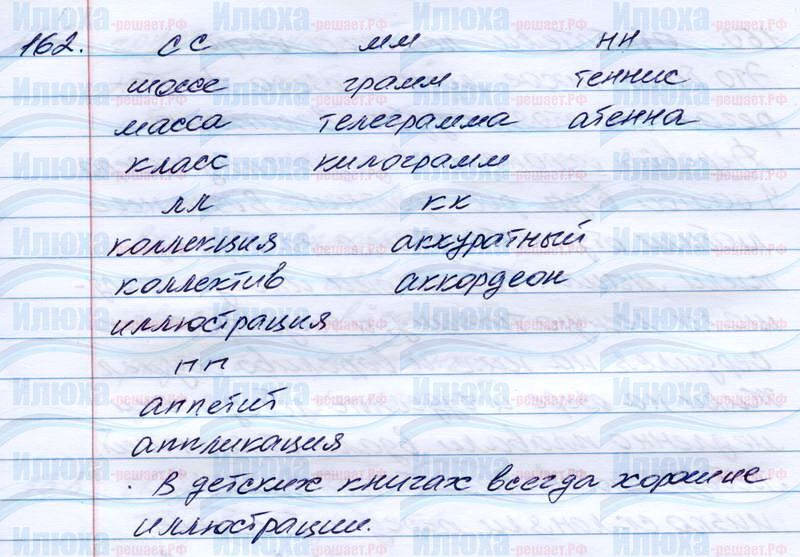 162. сс мм нн
шоссе грамм теннис
масса телеграмма атенна
класс килограмм
лл кк
коллекция аккуратный
коллектив аккордеон
иллюстрация
пп
аппетит
аппликация
В детских книгах всегда хорошие
иллюстрации.